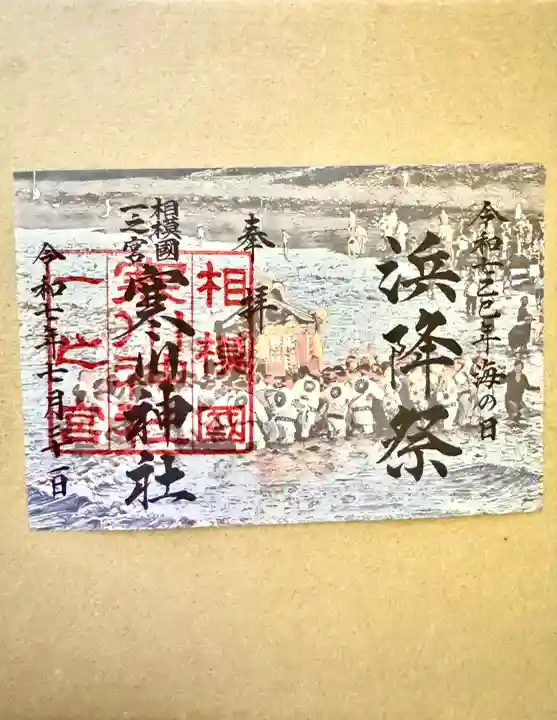 令和七乙巳年 海の日
浜降祭
奉拝
相模國
一之宮
寒川神社
令和七年七月 一日
相模國
寒川神社
一之宮